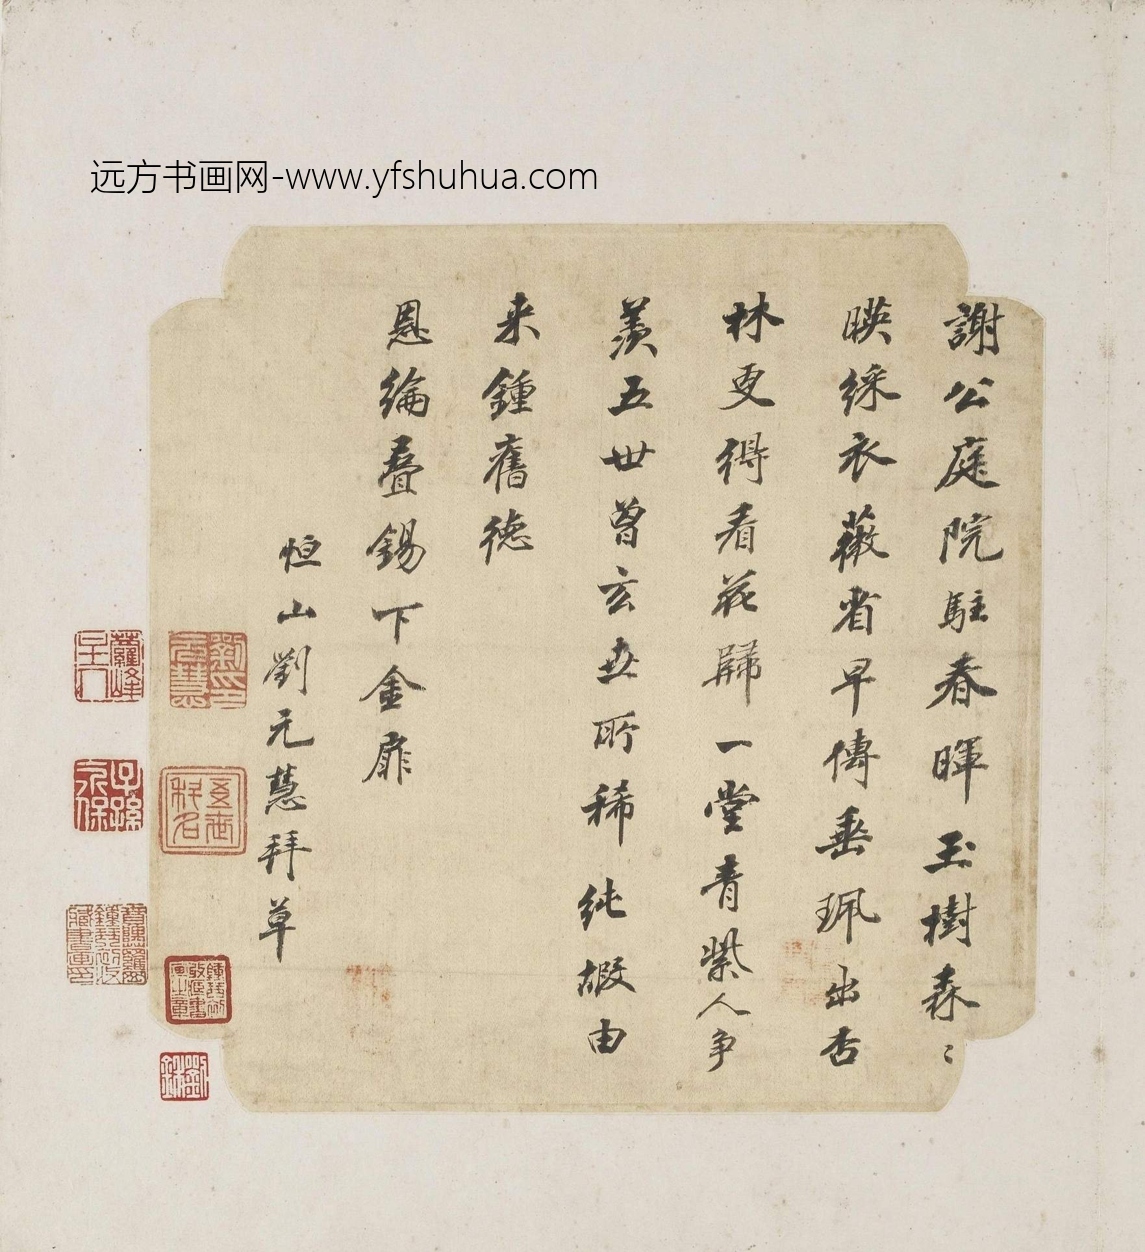 远方书画网-www.yfshuhua.com
謝公庭院駐春暉玉樹森〻
暎綵衣薇省早傳垂珮出杏
林更得看花歸一堂青紫人争
羨五世曾玄世所稀純嘏由
来鍾舊德
恩綸叠錫下金扉
恒山劉元慧拜草
劉印元慧
子孫永保